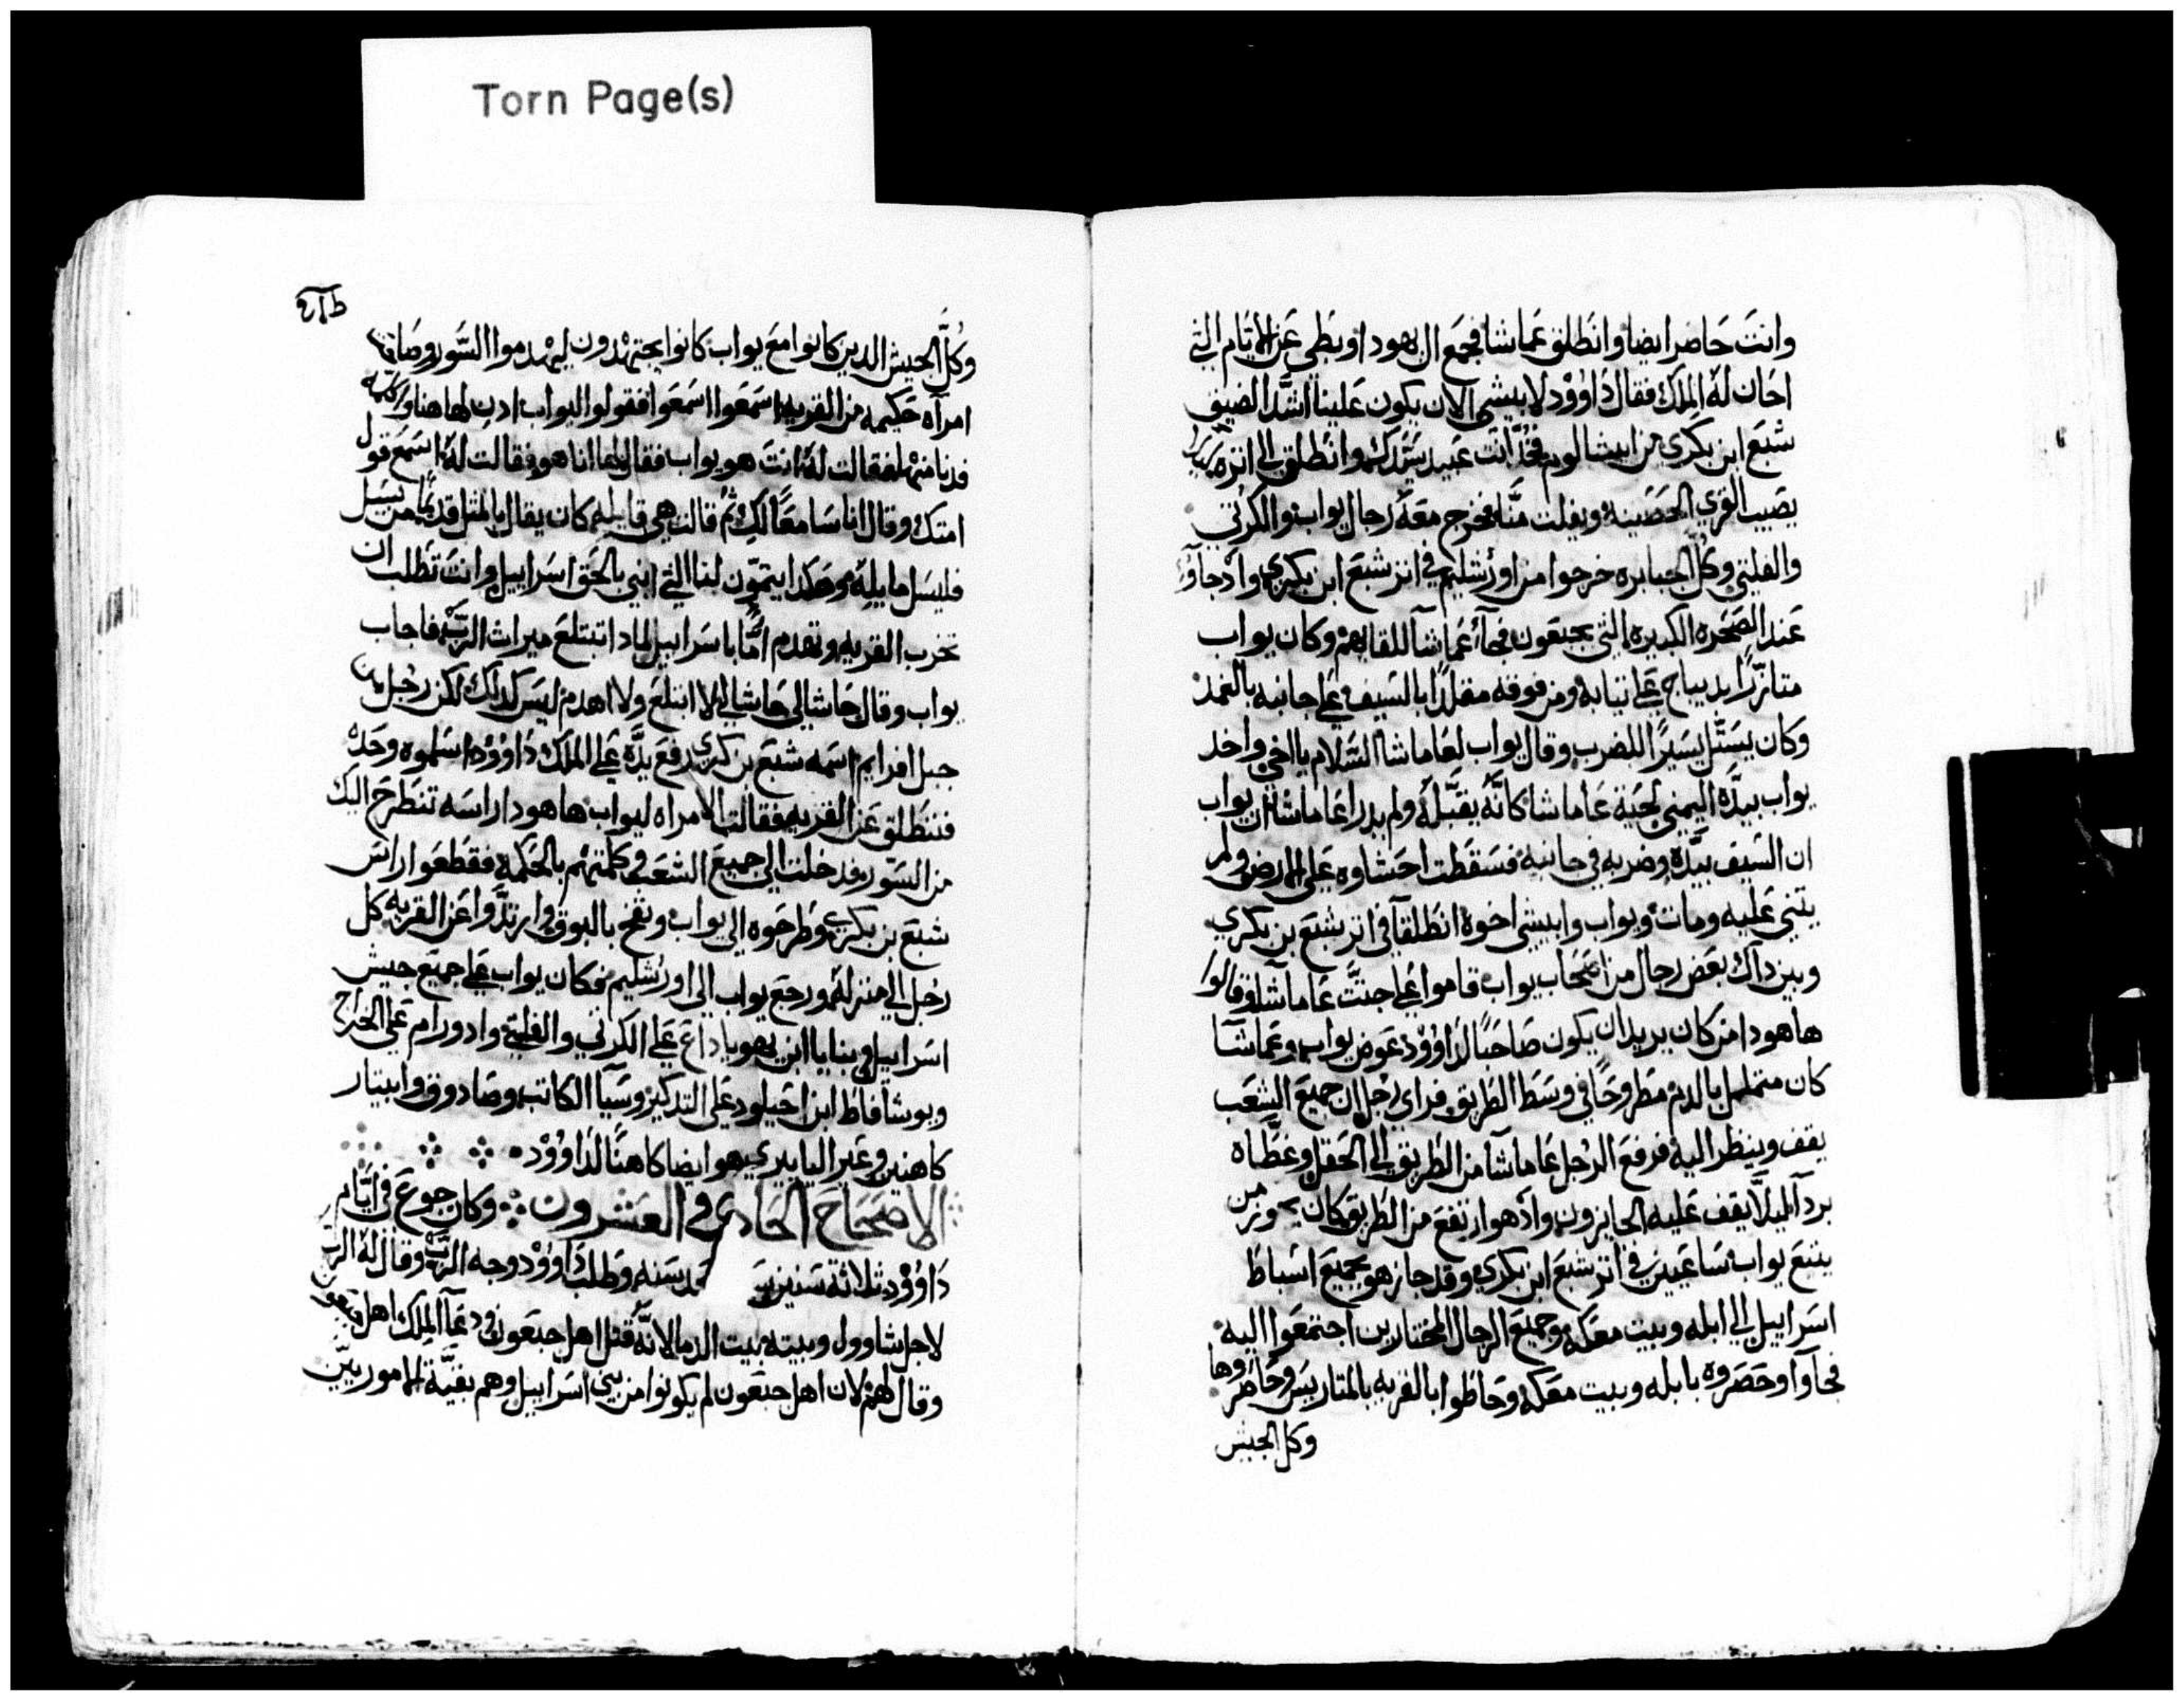 Torn Page(s)
وانت حاضرا ايضا وانطلق عماشا فجمع ال يهودا وبطي عن الايام التي
احان له الملك فقال داوود لابيشي الان يكون علينا اشد الضيق
شبع ابن بكري من ابيشالوم فخذ انت عبيد سيدك وانطلق الي اثره
يصيب القري الحصينه ويفلت منا فخرج معه رجال يواب والكرتي
والفلتي وكل الجبابره خرجوا من اورشليم في اثر شبع ابن بكري واذ جآوا
عند الصخره الكبيره التي بجبعون فجآء عماشا للقايهم وكان يواب
متازرًا بديباج علي ثيابه ومن فوقه مقلدًا بالسيف علي جانبه بالغمد
وكان يستل يسيرًا للضرب وقال يواب لعاماشا السلام يا اخي واخد
يواب بيده اليمني لحية عاماشا كانه يقبله ولم يدرا عاماشا ان يواب
ان السيف بيده وضربه في جانبه فسقطت احشاوه علي الارض ولم
يثني عليه ومات ويواب وابيشي اخوة انطلقا في اثر شبع بن بكري
وبين داك بعض رجال من اصحاب يواب قاموا علي جثت عاماشا وقالوا
ها هودا من كان يريد ان يكون صاحبًا لداوود عوض يواب وعماشا
كان متململ بالدم مطروحًا في وسط الطريق فراي رجل ان جميع الشعب
يقف وينظر اليه فرفع الرجل عاماشا من الطريق الي الحقل وغطاه
بردآ ليلا يقف عليه الجايزون واذ هو ارتفع من الطريق كان
يتبع يواب ساعيين في اثر شبع ابن بكري وقد جاز هو بجميع اسباط
اسراييل الي ابله وبيت معكه وجميع الرجال المختارين اجتمعوا اليه
فجآوا وحصروه بابله وبيت معكه وحاطوا بالقريه بالمتاريس وحاصروها
وكل الجيش
وكل الجيش الدين كانوا مع يواب كانوا يجتهدون ليهدموا السور وصاحت
امرآه حكيمه من القريه اسمعوا اسمعوا فقولوا اليواب ادن لها هنا
فدنا منها فقالت له انت هو يواب فقال لها انا هو فقالت له اسمع قول
امتك وقال انا سامعًا لك ثم قالت هي قايله كان يقال بالمثل قديمًا من يسل
فليسل ما بابله وهكدا يتمون لنا التي ابني بالحق اسراييل وانت تطلب ان
تخرب القريه وتهدم امًا باسراييل لمادا تبتلع ميراث الرب فاجاب
يواب وقال حاشا لي حاشا لي لا ابتلع ولا اهدم ليس كدلك لكن رجل من
جبل افرايم اسمه شبع بن بكري رفع يده علي الملك داوود اسلموه وحده
فننطلق عن القريه فقالت الامراه ليواب ها هودا راسه تنطرح اليك
من السور فدخلت الي جميع الشعب وكلمتهم بالحكمه فقطعوا راس
شبع بن بكري وطرحوه الي يواب ونفخ بالبوق وارتدوا عن القريه كل
رجل الي منزله ورجع يواب الي اورشليم فكان يواب علي جميع جيش
اسراييل وبنايا ابن يهوياداع علي الكرتي والفلتي وادورام علي الخراج
ويوشافاط ابن اخيلود علي التدكير وسيآ الكاتب وصادوق وابيتار
كاهنين وعيرا اليابيري هو ايضا كاهنًا لداوود
الاصحاح الحادي في العشرون وكان جوع في ايام
داوود ثلاثة سنين سنه وطلب داوود وجه الرب وقال له الرب
لاجل شاوول وبيته بيت الدما لانه قتل اهل جبعون فدعآ الملك اهل جبعون
وقال لهم لان اهل جبعون لم يكونوا من بني اسراييل وهم بقية الاموريين